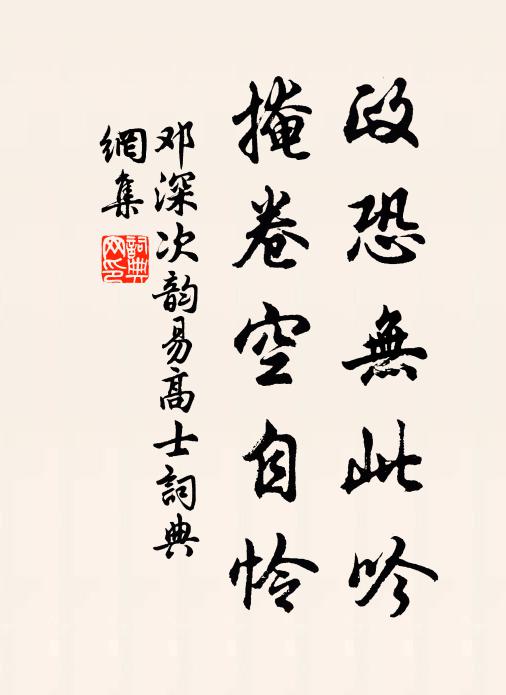 政恐無此吟
掩卷空自怜
邓深次韵易高士詞典
網集
詞典
网印